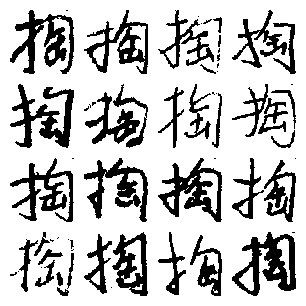 掏掏掏掏
掏掏掏掏
掏掏掏掏
掏掏掏掏